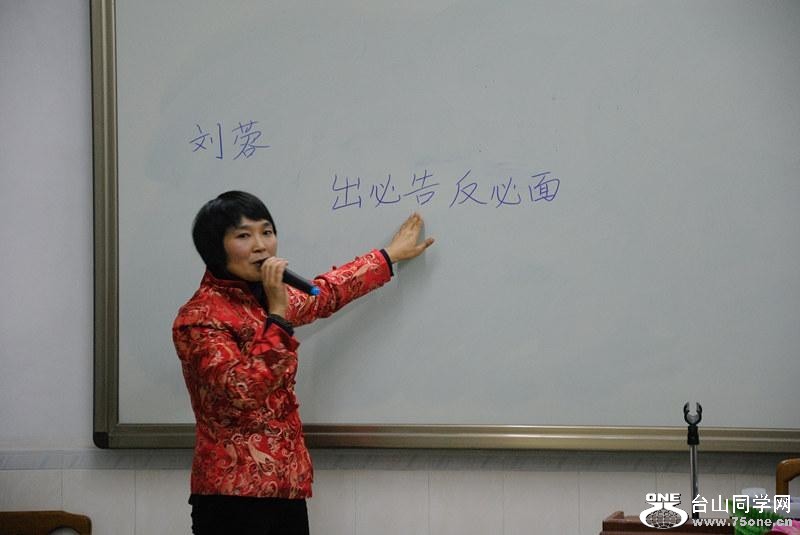 刘蓉
出必告 反必面
ONE
台山同学网
www.75one.cn